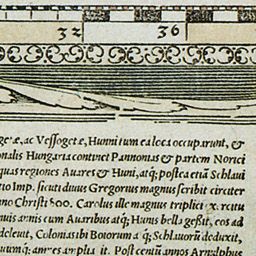 32 36
geæ, ac Vessogetæ, Hunni cum ea loca occuparunt, &
onalis Hungaria continet Pannonias & partem Norici
quas regiones Auares & Huni, atq; postea etiã Schlaui
tio Imp. sicuti diuus Gregorius magnus scribit circiter
nno Christi 800. Carolus ille magnus triplici exercitu
nuis annis cum Auaribus atq; Hunis bella gessit, eos ad
deleuit, Colonias ibi Boiorum atq; Schlauorũ deduxit,
Post centũ annos Arnolphus